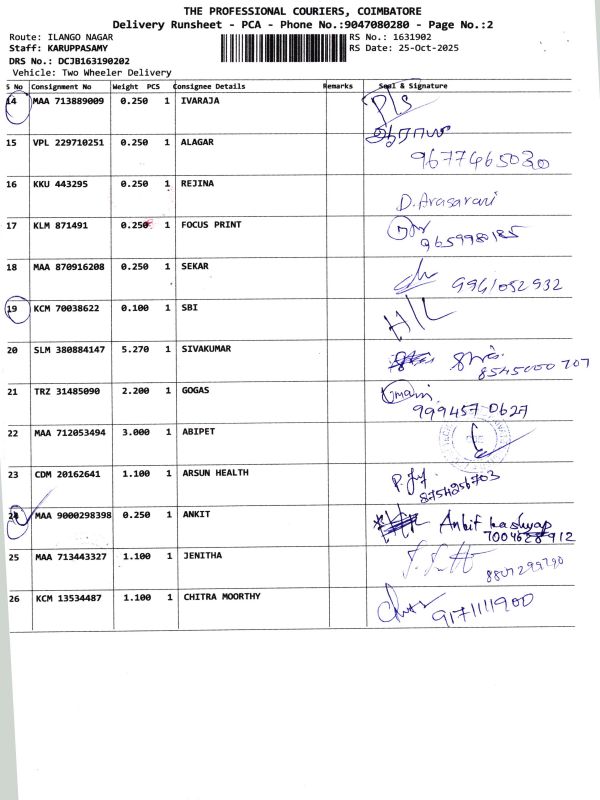 THE PROFESSIONAL COURIERS, COIMBATORE
Delivery Runsheet - PCA - Phone No.:9047080280 - Page No.:2
Route: ILANGO NAGAR
RS No.: 1631902
Staff: KARUPPASAMY
RS Date: 25-Oct-2025
DRS No.: DCJB163190202
Vehicle: Two Wheeler Delivery
S No Consignment No Weight PCS Consignee Details Remarks Seal & Signature
14 MAA 713889009 0.250 1 IVARAJA P/S
15 VPL 229710251 0.250 1 ALAGAR
9677465030
16 KKU 443295 0.250 1 REJINA D. Arasarani
17 KLM 871491 0.250 1 FOCUS PRINT
9659980185
18 MAA 870916208 0.250 1 SEKAR 9961052932
19 KCM 70038622 0.100 1 SBI H/L
20 SLM 380884147 5.270 1 SIVAKUMAR
8545000707
21 TRZ 31485090 2.200 1 GOGAS
9994570627
22 MAA 712053494 3.000 1 ABIPET
23 CDM 20162641 1.100 1 ARSUN HEALTH
8754256703
24 MAA 9000298398 0.250 1 ANKIT Ankit kashyap
7004628912
25 MAA 713443327 1.100 1 JENITHA
26 KCM 13534487 1.100 1 CHITRA MOORTHY
9171111900